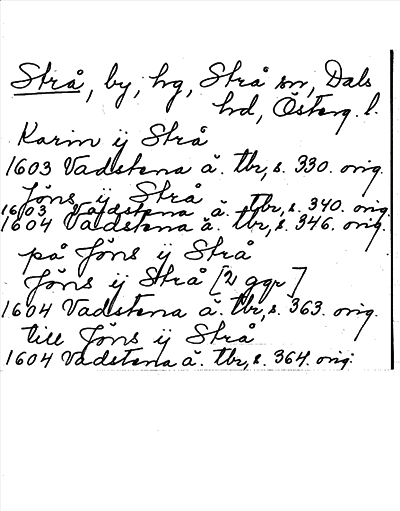 Strå, by, hg, Strå sn, Dals
hd, Österg. l.
Karin ij Strå
1603 Vadstena ä. tbr, s. 330. orig.
Jöns ij Strå
1603 Vadstena ä. tbr, s. 340. orig.
1604 Vadstena ä. tbr, s. 346. orig.
på Jöns ij Strå
Jöns ij Strå [2 ggr]
1604 Vadstena ä. tbr, s. 363. orig.
till Jöns ij Strå
1604 Vadstena ä. tbr, s. 364. orig.